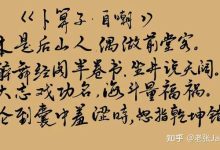 《卜算子·自嘲》
本是后山人 偶做前堂客,
醉舞经阁半卷书,坐井说天阔。
大志戏功名,海斗量福祸。
论到囊中羞涩时,怒指乾坤错
知乎 @老张Ja